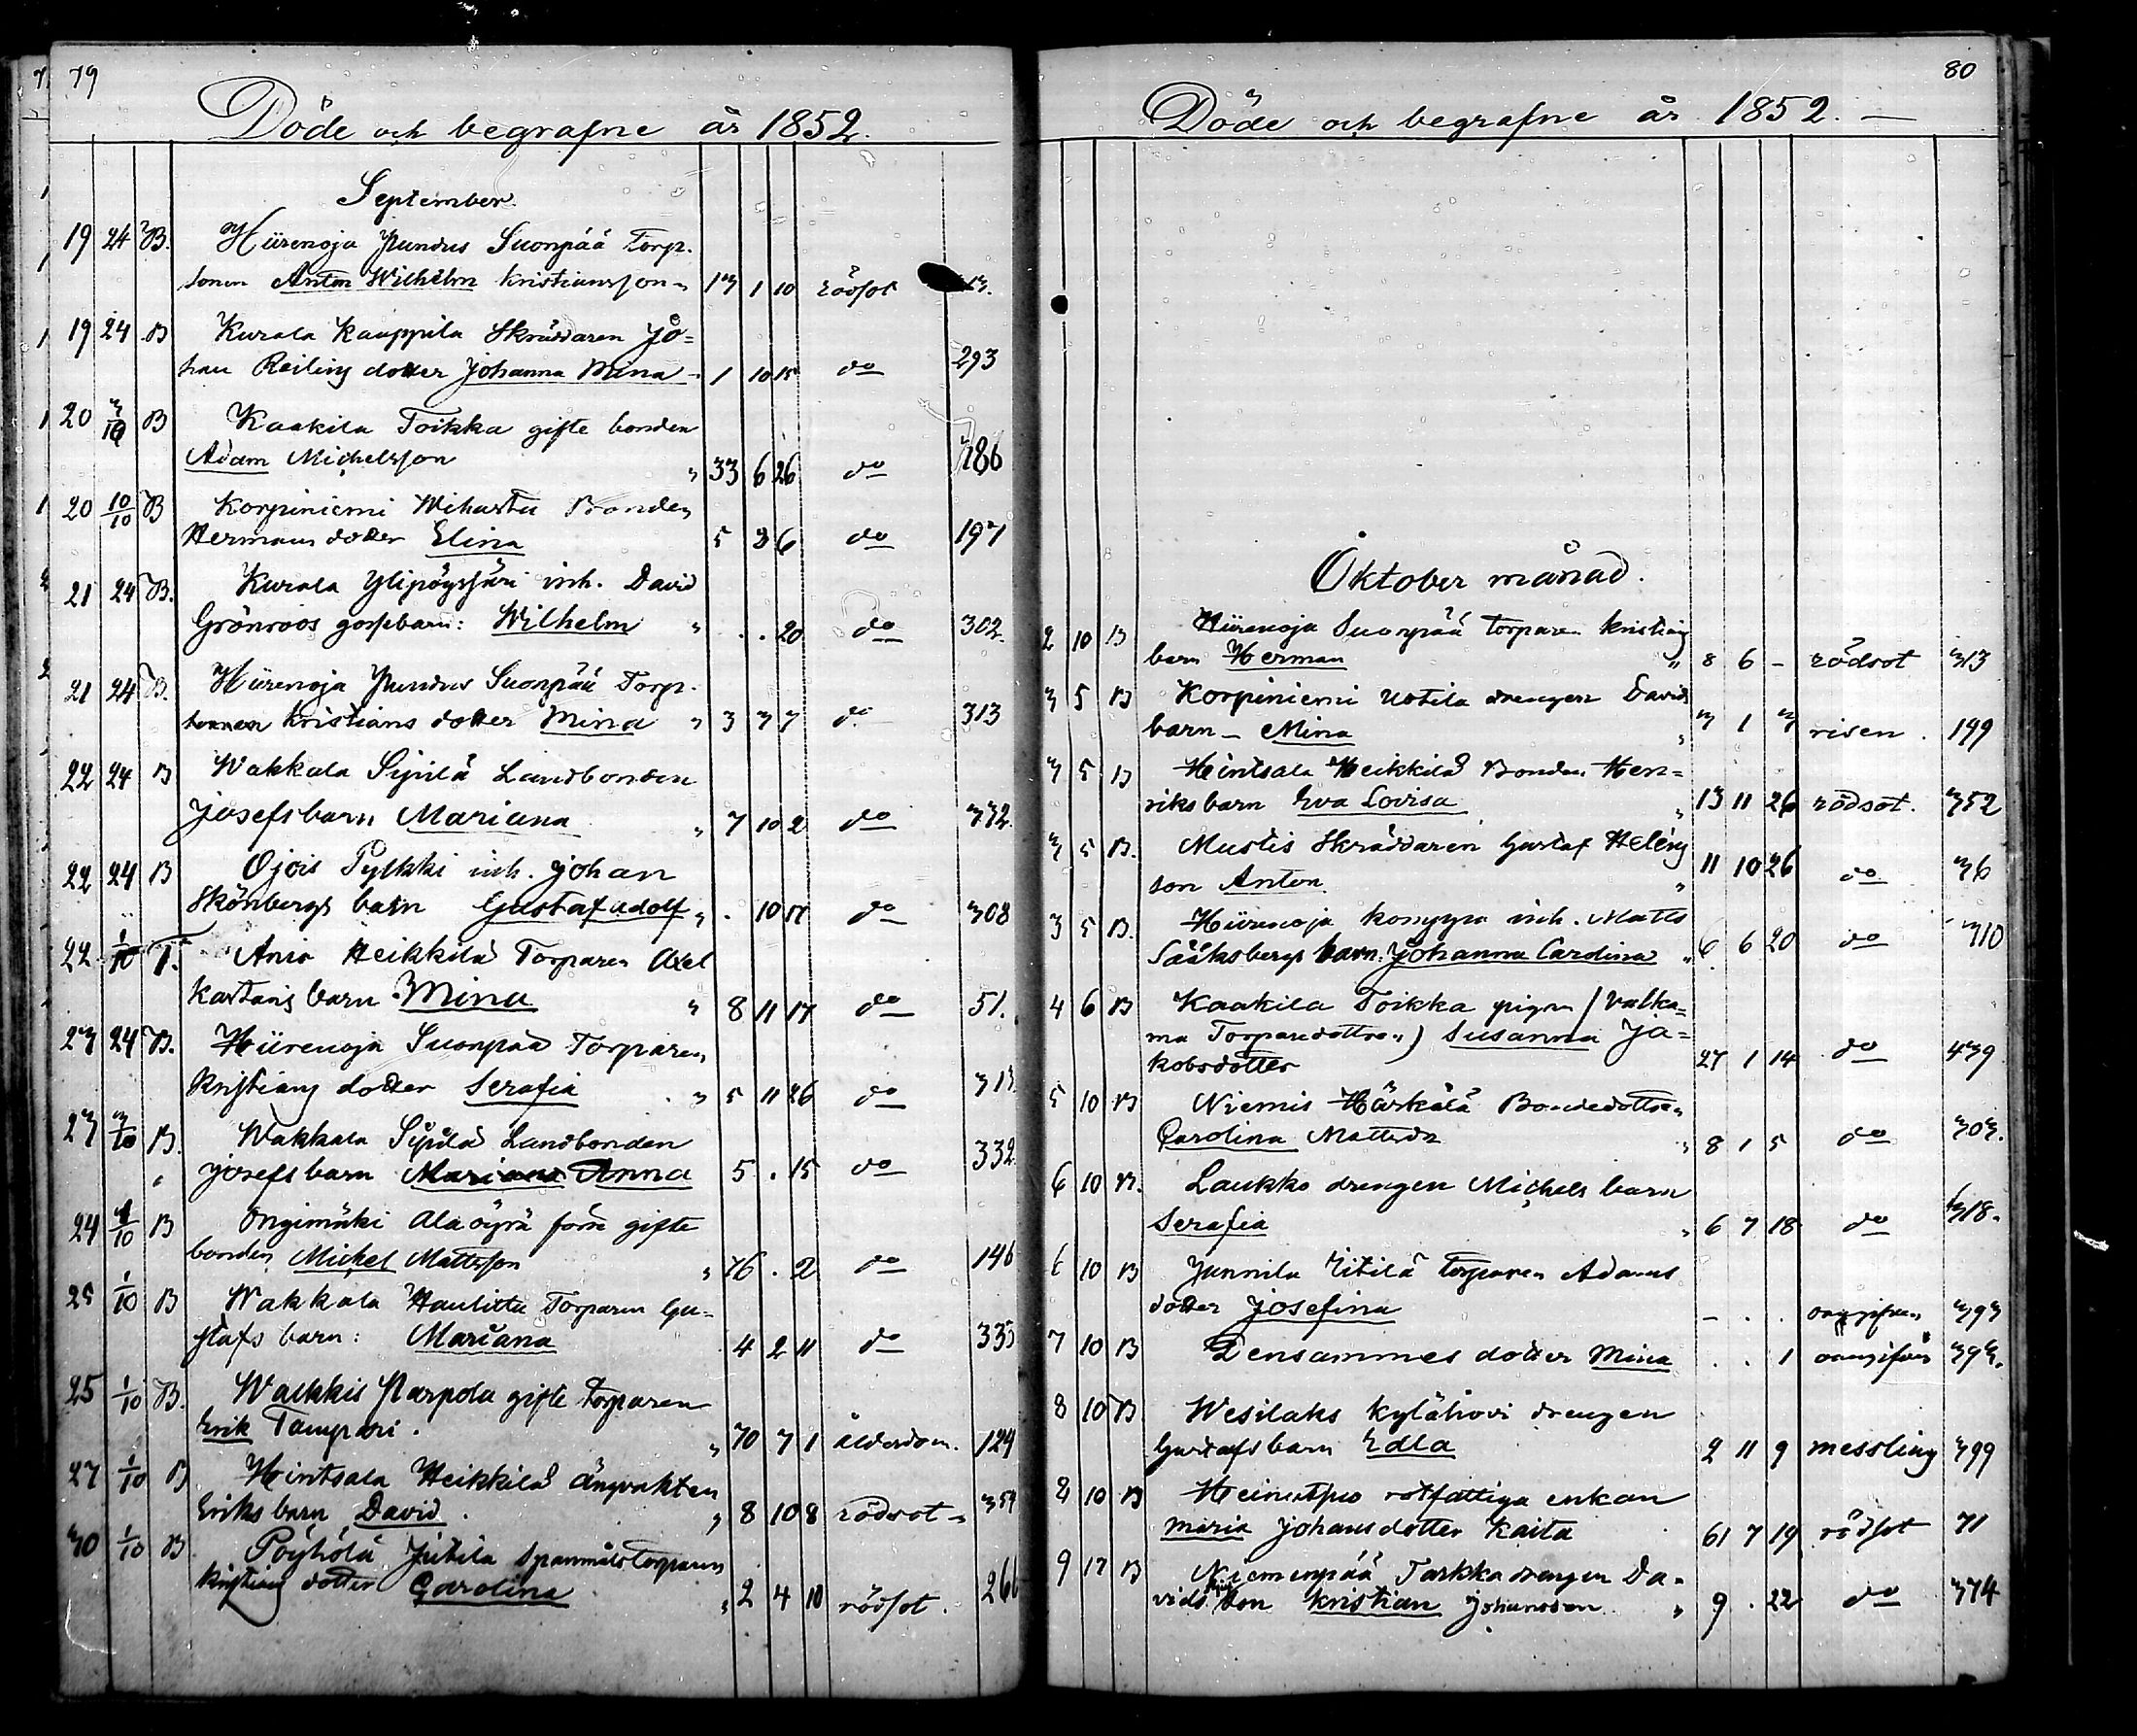 79
Döde och begrafne år 1852.
September
19 24 B. Hiirenoja Pundus Suonpää Torp.
sonen Anton Wilhelm Kristiansson " 13 1 10 rödsot
19 24 B Kurala Kauppila Skräddaren Jo=
han Reiling dotter Johanna Mina 1 10 15 do 293
20 3/10 B Kaakila Toikka gifte bonden
Adam Michelsson " 33 6 26 do 186
20 10/10 B Korpiniemi Wihastu Bonden
Hermans dotter Elina 5 8 6 do 197
21 24 B. Kurala Ylipöyssäri inh. David
Grönroos gossebarn: Wilhelm " . . 20 do 302.
21 24 B. Hiirenoja Pundus Suonpää Torp.
Kristians dotter Mina " 3 3 7 do 313
22 24 B Wakkala Sipilä Landbonden
Josefs barn Mariana " 7 10 2 do 332.
22 24 B Ojois Pylkki inh. Johan
Skönbergs barn Gustaf Adolf " . 10 17 do 308
22 1/10 T. Anio Heikkilä Torparen Axel
barn Mina " 8 11 17 do 51.
23 24 B. Hiirenoja Suonpää Torparen
Kristians dotter Serafia " 5 11 26 do 313
23 3/10 B. Wakkala Sipilä Landbonden
Josefs barn Mariana Anna 5 . 15 do 332
24 1/10 B Ongimäki Alaöyrä förre gifte
bonden Michel Mattsson " 76 . 2 do 146
25 1/10 B Wakkala Haulittu Torparen Gu=
stafs barn: Mariana 4 2 11 do 335
25 1/10 B. Walkkis Parpola gifte torparen
Erik Tampari. " 70 7 1 ålderdom. 124
27 1/10 B Hintsala Heikkilä ängvakten
Eriks barn David. " 8 10 8 rödsot " 354
30 1/10 B Pöyhölä Jutila Spanmålstorparen
Kristians dotter Carolina " 2 4 10 rödsot. 266
80
Döde och begrafne år 1852. —
Oktober månad.
2 10 B Hiirenoja Suonpää torparen Kristians
barn Herman " 8 6 - rödsot 313
3 5 B Korpiniemi Uotila drengen Davids
barn - Mina " 3 1 3 risen. 199
3 5 B Hintsala Heikkilä Bonden Hen=
riks barn Eva Lovisa " 13 11 26 rödsot. 352
3 5 B. Mustis Skräddaren Gustaf Heléns
son Anton " 11 10 26 do 36
3 5 B. Hiirenoja inh. Matts
Sääksbergs barn. Johanna Carolina " 6 6 20 do 310
4 6 B Kaakila Toikka pigan (Valka=
ma Torparedottren) Susanna Ja=
kobsdotter 27 1 14 do 439
5 10 B Niemis Härkälä Bondedottren
Carolina Mattsdr " 8 1 5 do 303.
6 10 B. Laukko drengen Michels barn
Serafia " 6 7 18 do 318.
6 10 B Junnila Eitilä torparen Adams
dotter Josefina - . . oangifven 393
7 10 B Densammes dotter Mina . . 1 oangifven 393.
8 10 B Wesilaks Kylähovi drengen
Gustafs barn Edla 2 11 9 messling 399
8 10 B rotfattiga enkan
Maria Johansdotter Kaita 61 7 19 rödsot 71
9 17 B Niemenpää Tarkka drengen Da=
vids son Kristian Johansson " 9 . 22 do 374